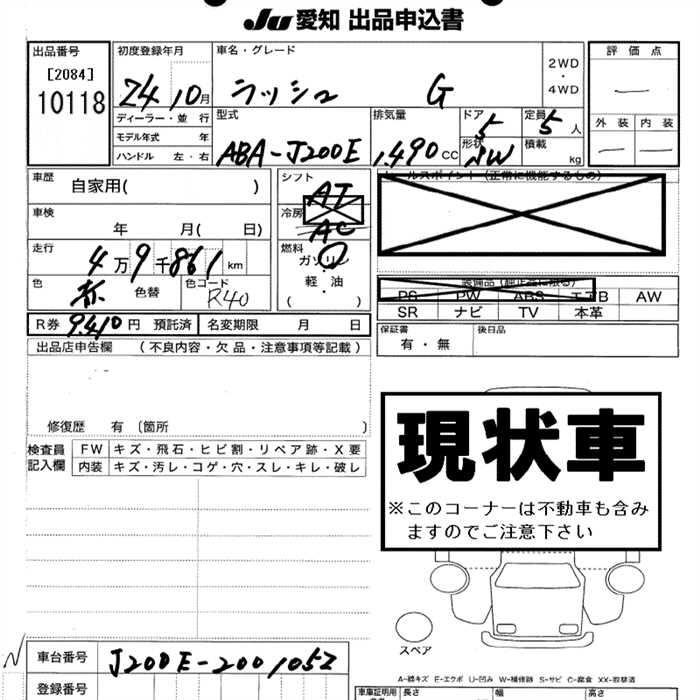 JU 愛知 出品申込書
出品番号
[2084]
10118
初度登録年月
24 10月
ディーラー・並 行
モデル年式 年
ハンドル 左・右
車名・グレード
ラッシュ G
2WD
・
4WD
型式
ABA-J200E
排気量
1,490 cc
ドア
5
形状
SW
定員
5 人
積載
kg
評 価 点
―
外 装 内 装
― ―
車歴
自家用( )
車検
年 月( 日)
走行
4万9千861 km
色
赤 色替
色コード
R40
R券 9,410円 預託済 名変期限 月 日
シフト
AT
冷房
AC
燃料
ガソリン
軽・油
( )
セールスポイント (正常に機能するもの)
装備品 (純正品に限る)
PS PW ABS エアB AW
SR ナビ TV 本革
保証書
有・無
後日品
出品店申告欄 (不良内容・欠品・注意事項等記載)
修復歴 有 〔箇所 〕
検査員
記入欄
FW キズ・飛石・ヒビ割・リペア跡・X要
内装 キズ・汚レ・コゲ・穴・スレ・キレ・破レ
現状車
※このコーナーは不動車も含み
ますのでご注意下さい
スペア
車台番号 J200E-2001052
登録番号
A-線キズ E-エクボ U-凹み W-補修跡 S-サビ C-腐食 XX-取替済
車庫証明用
長さ 幅 高さ